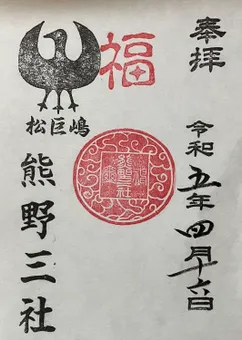 奉拝
令和五年四月十六日
福
松巨嶋
熊野三社